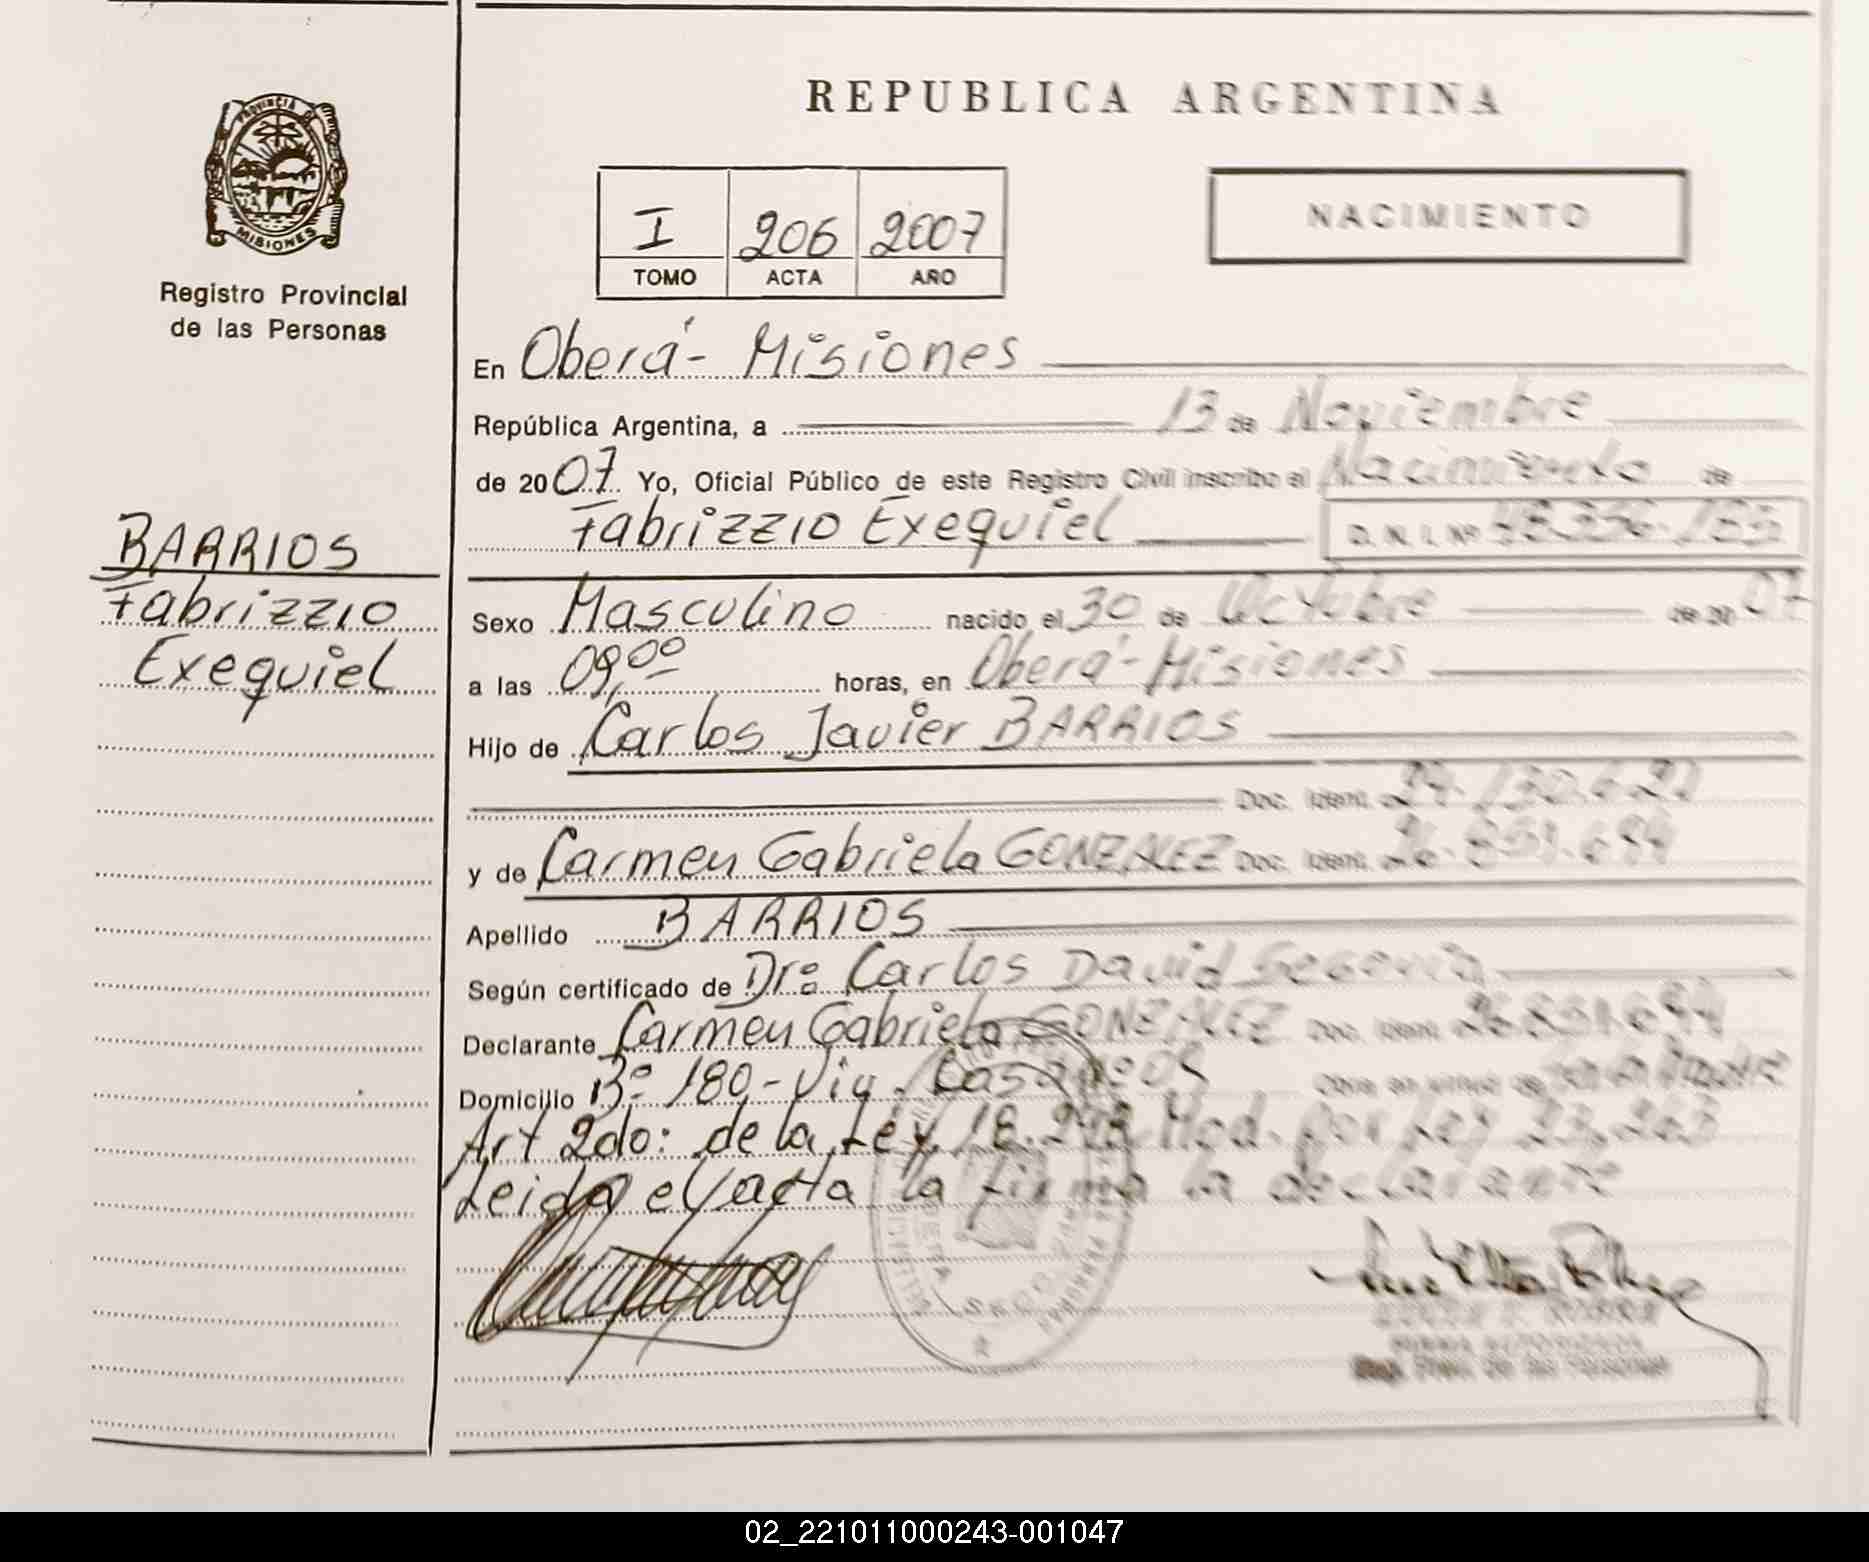 REPUBLICA ARGENTINA
PROVINCIA DE
MISIONES
Registro Provincial
de las Personas
I 206 2007
TOMO ACTA AÑO
NACIMIENTO
En Oberá - Misiones
República Argentina, a 13 de Noviembre
de 2007 Yo, Oficial Público de este Registro Civil inscribo el Nacimiento de
Fabrizzio Exequiel D.N.I. Nº
BARRIOS
Fabrizzio
Exequiel
Sexo Masculino nacido el 30 de Octubre de 2007
a las 09,00 horas, en Oberá - Misiones
Hijo de Carlos Javier BARRIOS
Doc. Ident.
y de Carmen Gabriela GONZALEZ Doc. Ident.
Apellido BARRIOS
Según certificado de Dr: Carlos David Segovia
Declarante Carmen Gabriela GONZALEZ Doc. Ident. 26.851.694
Domicilio Bº 180 - Viv. Casa nº 09 Obra en virtud de
Art 2do: de la Ley 18.248 Mod. por Ley 23.263
Leida el acta la firma la declarante
Reg. Prov. de las Personas
02_221011000243-001047